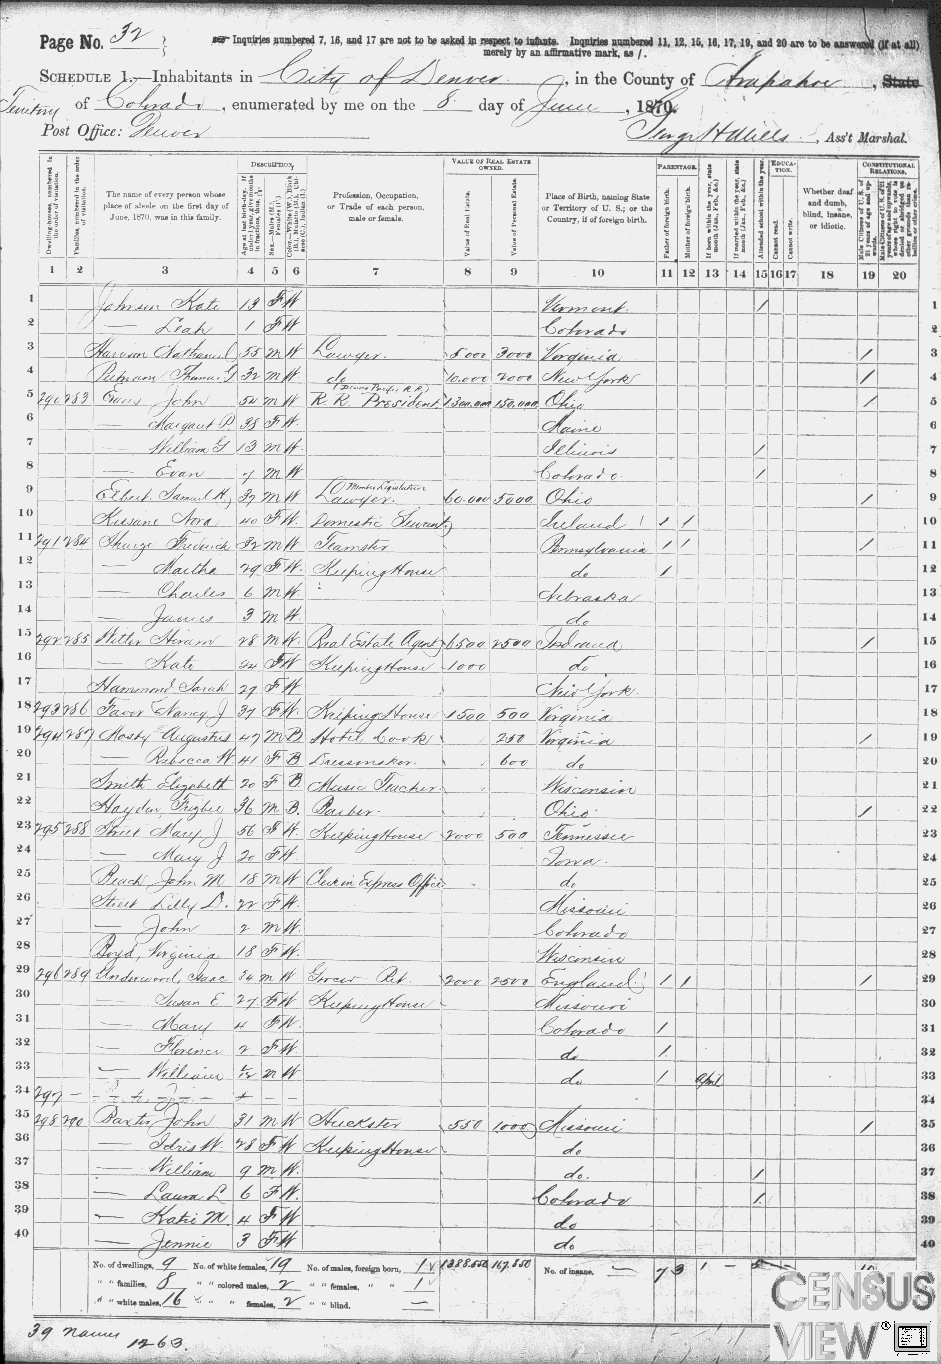 Page No. 32
Inquiries numbered 7, 16, and 17 are not to be asked in respect to infants. Inquiries numbered 11, 12, 15, 16, 17, 19, and 20 are to be answered (if at all)
merely by an affirmative mark, as /.
SCHEDULE 1.—Inhabitants in City of Denver, in the County of Arapahoe, State
Territory of Colorado, enumerated by me on the 8 day of June, 1870.
Post Office: Denver
Ass't Marshal.
DESCRIPTION. VALUE OF REAL ESTATE OWNED. PARENTAGE. EDUCATION. CONSTITUTIONAL RELATIONS.
Dwelling-houses, numbered in the order of visitation.
Families, numbered in the order of visitation.
The name of every person whose place of abode on the first day of June, 1870, was in this family.
Profession, Occupation, or Trade of each person, male or female.
Value of Real Estate.
Value of Personal Estate.
Place of Birth, naming State or Territory of U. S.; or the Country, if of foreign birth.
Father of foreign birth.
Mother of foreign birth.
Attended school within the year.
Cannot read.
Cannot write.
Whether deaf and dumb, blind, insane, or idiotic.
1 2 3 4 5 6 7 8 9 10 11 12 13 14 15 16 17 18 19 20
1 Johnson Kate 13 F W Vermont / 1
2 — Leah 1 F W Colorado 2
3 Harrison Nathaniel 55 M W Lawyer 5000 3000 Virginia / 3
4 Putnam Thomas G 32 M W do 10.000 2000 New York / 4
5 290 283 Evans John 54 M W R. R. President (Denver Pacific R.R.) 1300.000 150.000 Ohio / 5
6 — Margaret P. 38 F W Maine 6
7 — William G 13 M W Illinois / 7
8 — Evan 7 M W Colorado / 8
9 Elbert Samuel H, 37 M W Lawyer (Member Legislature 60.000 5000 Ohio / 9
10 Kissane Nora 40 F W Domestic Servant Ireland / / 10
11 291 284 Fredrick 32 M W Teamster Pennsylvania / / / 11
12 — Martha 29 F W Keeping House do / 12
13 — Charles 6 M W Nebraska 13
14 — James 3 M W do 14
15 292 285 Witter Hiram 28 M W Real Estate Agent 6500 2500 Indiana / 15
16 — Kate 24 F W Keeping House 1000 do 16
17 Hammond Sarah 27 F W New York 17
18 293 286 Favor Nancy J 37 F W Keeping House 1500 500 Virginia 18
19 294 287 Mosby Augustus 47 M B Hotel Cook 250 Virginia / 19
20 — Rebecca W 41 F B Dressmaker 600 do 20
21 Smith Elizabeth 20 F B Music Teacher Wisconsin 21
22 Hayden, 36 M B Barber Ohio / 22
23 295 288 Street Mary J 56 F W Keeping House 2000 500 Tennessee 23
24 — Mary J 20 F W Iowa 24
25 Beach John M 18 M W Clerk in Express Office do 25
26 Street Lilly D. 22 F W Missouri 26
27 — John 2 M W Colorado 27
28 Boyd, Virginia 18 F W Wisconsin 28
29 296 289 Underwood, Isaac 34 M W Grocer Ret. 2000 2500 England / / / 29
30 — Susan E 27 F W Keeping House Missouri 30
31 — Mary 4 F W Colorado / 31
32 — Florence 2 F W do / 32
33 — William M W do / April 33
34 297 — 34
35 298 290 Baxter John 31 M W Huckster 550 1000 Missouri / 35
36 — Idris W 28 F W Keeping House do 36
37 — William 9 M W do. / 37
38 — Laura L 6 F W Colorado / 38
39 — Katie M 4 F W do 39
40 — Jennie 3 F W do 40
No. of dwellings, 9 No. of white females, 19 No. of males, foreign born, 1 1388.550 167.850 No. of insane, — 7 3 1 — 5
" " families, 8 " " colored males, 2 " " females, " " 1
" " white males, 16 " " " females, 2 " " blind. —
39 Names
1263
CENSUS
VIEW®